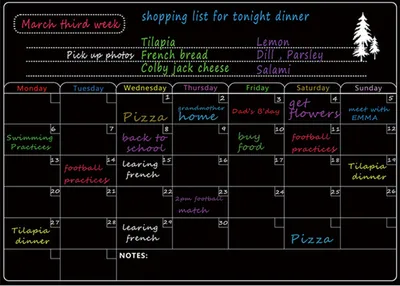 March third week
shopping list for tonight dinner
Tilapia Lemon
Pick up photos French bread Dill , Parsley
Colby jack cheese Salami
Monday Tuesday Wednesday Thursday Friday Saturday Sunday
1 2 3 4 5
Pizza
grandmother
home
Dad's B'day
get
flowers
meet with
EMMA
6 7 8 9 10 11 12
Swimming
Practices
back to
school
buy
food
football
practices
13 14 15 16 17 18 19
football
practices
learing
french
Tilapia
dinner
22
2pm football
match
27 28 29 30
Tilapia
dinner
learing
french
Pizza
NOTES: